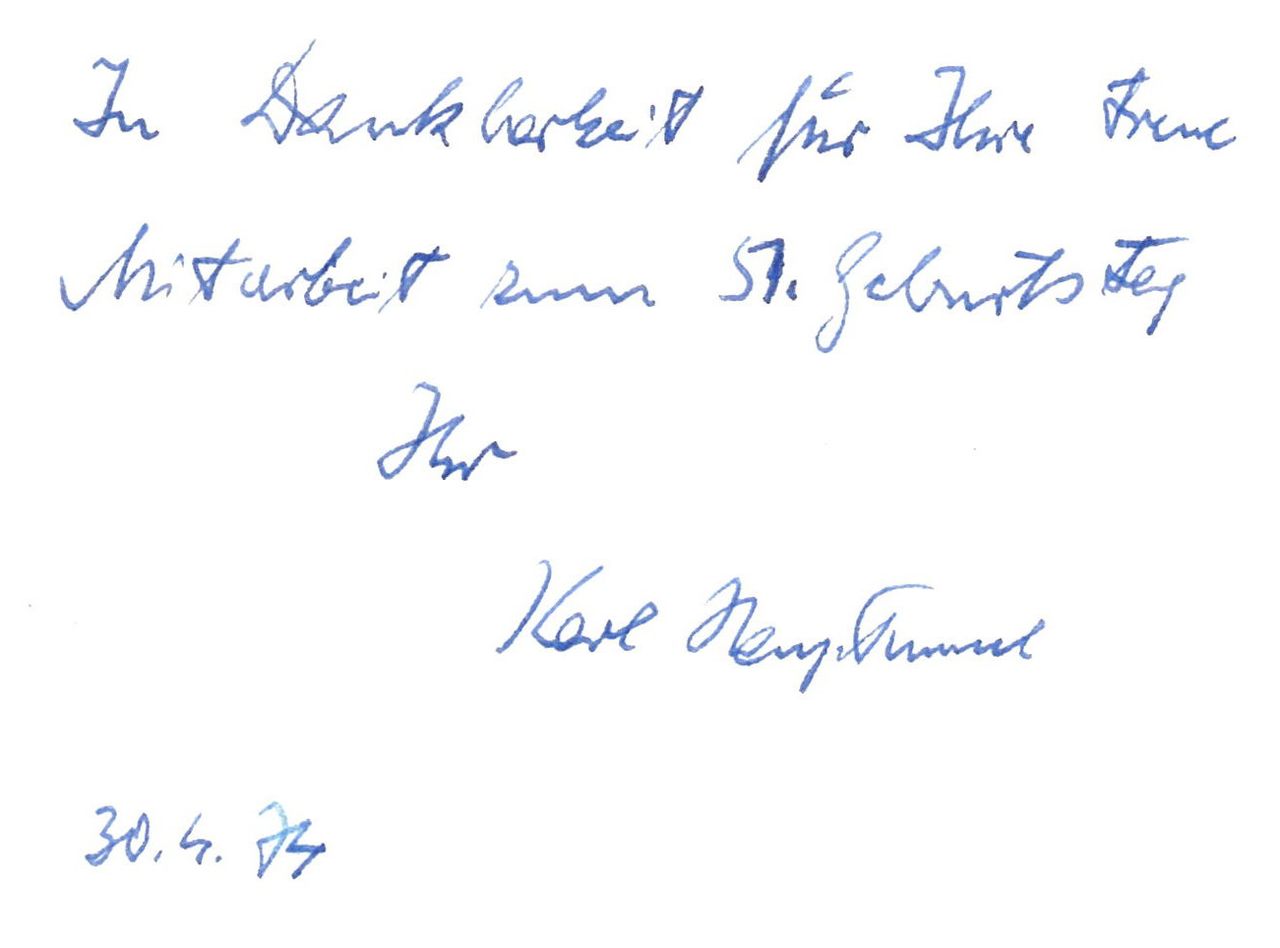 In Dankbarkeit für Ihre treue
Mitarbeit zum 51. Geburtstag
Ihr
Karl
30. 4. 74